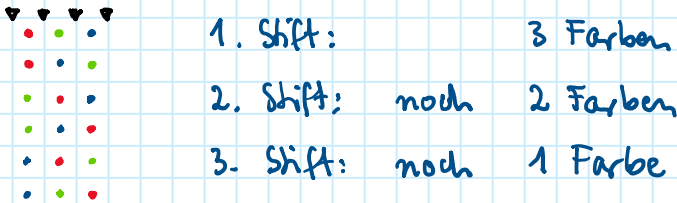 1. Stift: 3 Farben
2. Stift: noch 2 Farben
3. Stift: noch 1 Farbe